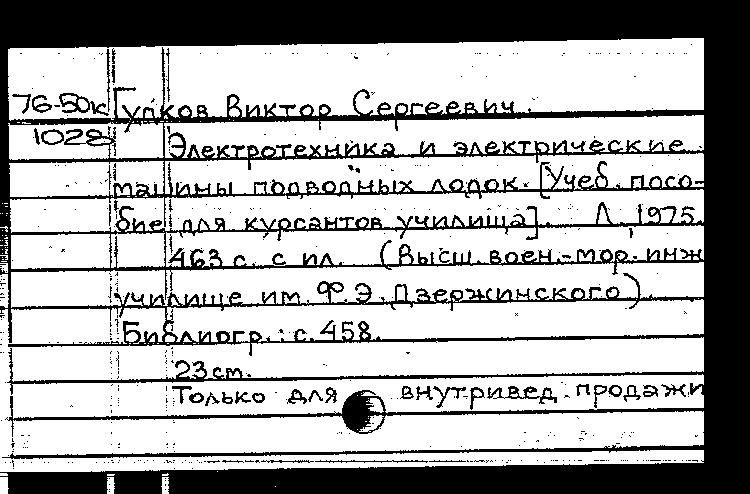 76-50к Гупков Виктор Сергеевич.
1028 Электротехника и электрические
машины подводных лодок. [Учеб. посо-
бие для курсантов училища]. Л., 1975.
463 с. с ил. (Высш. воен.-мор. инж
училище им. Ф.Э. Дзержинского).
Библиогр.: с. 458.
23 см.
Только для внутривед. продажи